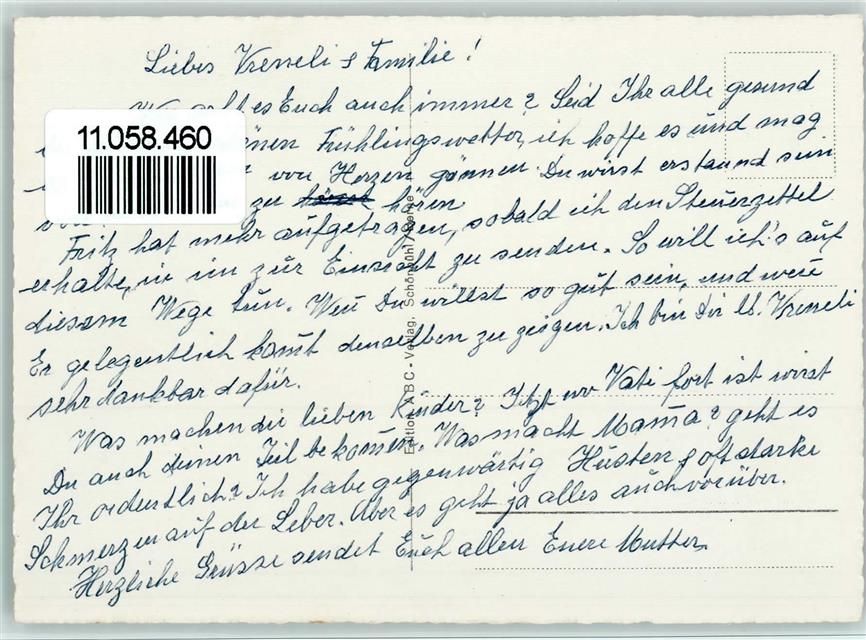 Liebes Vreneli & Familie!
geht es Euch auch immer? Seid Ihr alle gesund
Frühlingswetter, ich hoffe es und mag
11.058.460
von Herzen gönnen. Du wirst erstaund sein
zu hören
Fritz hat mehr aufgetragen, sobald ich den Steuerzettel
erhalte, in im zur Einsicht zu senden. So will ich's auf
diesem Wege tun. Weñ Du willst so gut sein, und weñ
Er gelegentlich kom̃t denselben zu zeigen. Ich bin Dir lb. Vreneli
sehr dankbar dafür.
Was machen die lieben Kinder? Jetzt wo Vati fort ist wirst
Du auch deinen Teil bekom̃en. Was macht Mama? geht es
Ihr ordentlich? Ich habe gegenwärtig Husten & oft starke
Schmerzen auf der Leber. Aber es geht ja alles auch vorüber.
Herzliche Grüsse sendet Euch allen Euere Mutter.
Edition ABC - Verlag, Schönbühl / Berne